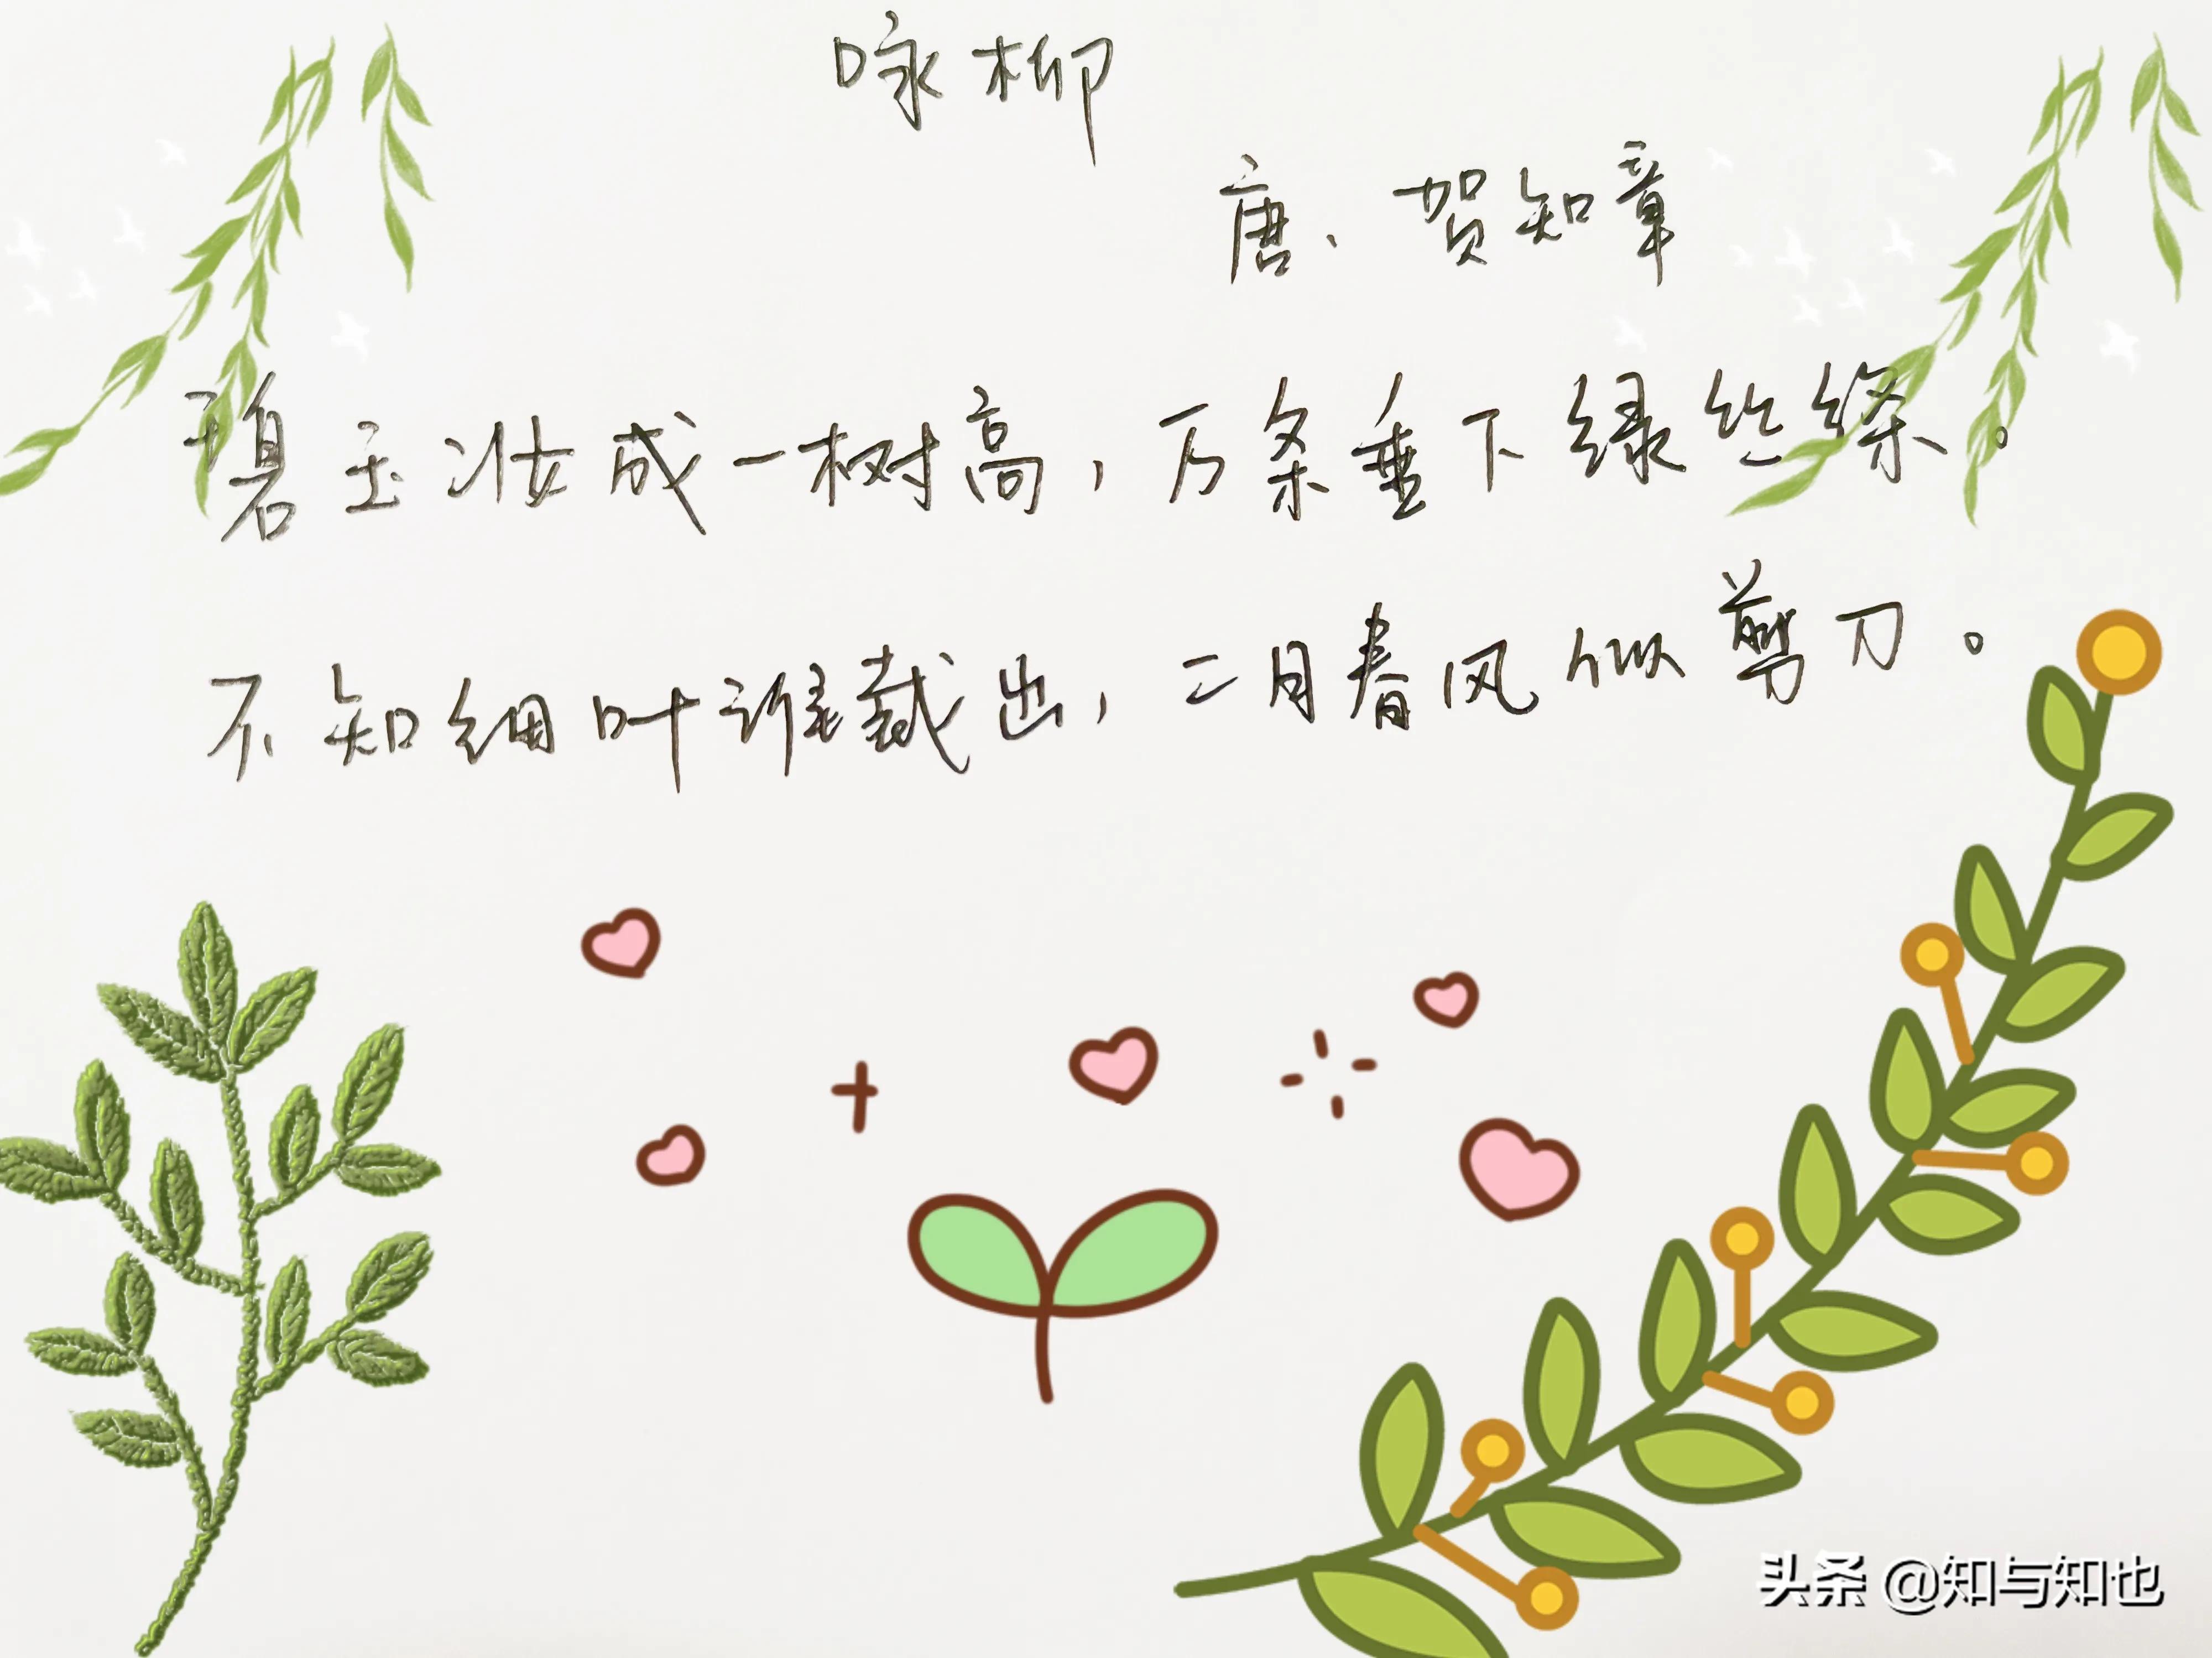 咏柳
唐、贺知章
碧玉妆成一树高，万条垂下绿丝绦。
不知细叶谁裁出，二月春风似剪刀。
头条 @知与知也